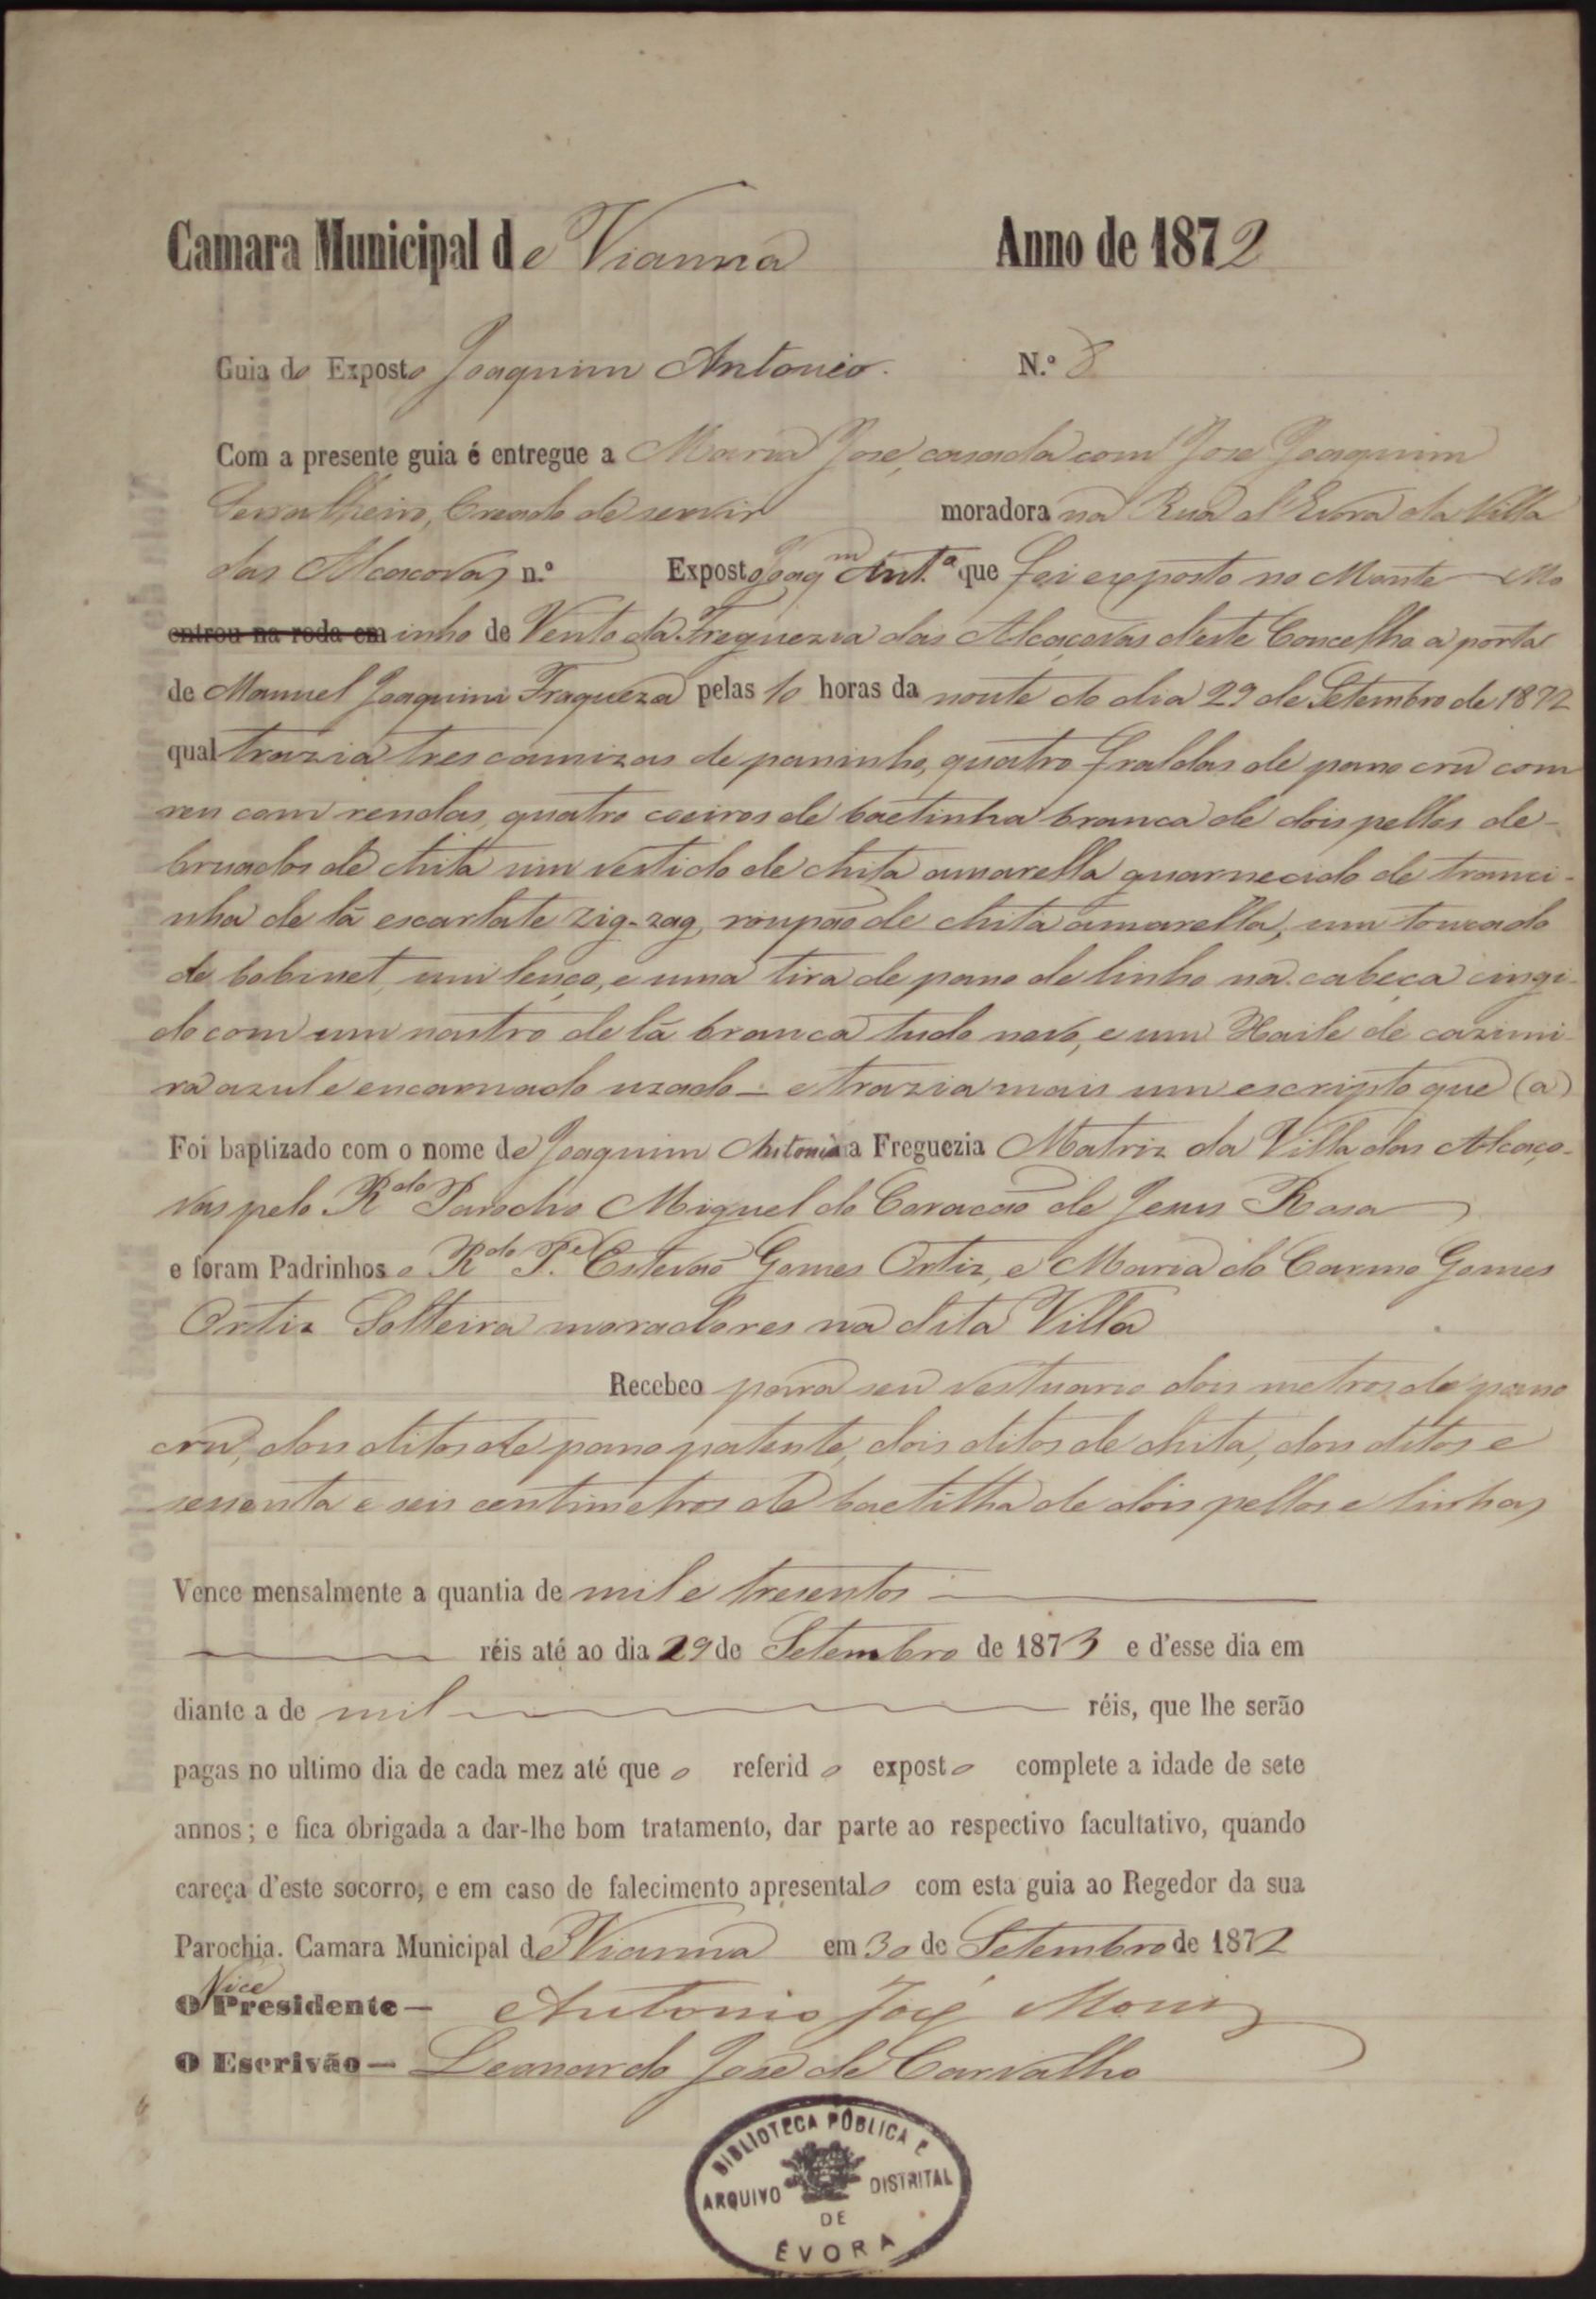 Camara Municipal de Vianna Anno de 1872
Guia do Exposto Joaquim Antonio. N.º 8
Com a presente guia é entregue a Maria José, casada com José Joaquim
Serralheiro, Creado de servir moradora na Rua d'Evora da Villa
das Alcacovas n.º Exposto Joaqm Ant.º que foi exposto no Monte Mo
entrou na roda em inho de Vento da Freguezia das Alcaçovas deste Concelho a porta
de Manuel Joaquim Fraqueza pelas 10 horas da noute do dia 29 de Setembro de 1872
qual trazia tres camizas de paninho, quatro fraldas de pano cru com
reu com rendas, quatro coeiros de baetinha branca de dois pellos de-
bruados de chita um vestido de chita amarella guarnecido de tranci-
nha de lã escarlate zig-zag, roupão de chita amarella, um toucado
de bobinet, um lenço, e uma tira de pano de linho na cabeça cingi-
do com um nastro de lã branca tudo novo, e um Haile de cazimi-
ra azul e encarnado uzado - e trazia mais um escripto que (a)
Foi baptizado com o nome de Joaquim Antonio na Freguezia Matriz da Villa das Alcaço-
vas pelo Rdo Parocho Miguel do Coração de Jesus Rosa
e foram Padrinhos o Rdo Pe Estevão Gomes Ortiz, e Maria do Carmo Gomes
Ortiz Solteira moradores na dita Villa
Recebeo para seu vestuario dois metros de pano
cru, dois ditos de pano patente, dois ditos de chita, dois ditos e
sessenta e seis centimetros de baetilha de dois pellos e linhas
Vence mensalmente a quantia de mil e tresentos
réis até ao dia 29 de Setembro de 1873 e d'esse dia em
diante a de mil réis, que lhe serão
pagas no ultimo dia de cada mez até que o referido exposto complete a idade de sete
annos; e fica obrigada a dar-lhe bom tratamento, dar parte ao respectivo facultativo, quando
careça d'este socorro; e em caso de falecimento apresentalo com esta guia ao Regedor da sua
Parochia. Camara Municipal de Vianna em 30 de Setembro de 1872
O Vice Presidente— Antonio José Moniz
O Escrivão— Leonardo José de Carvalho
BIBLIOTECA PÚBLICA E
ARQUIVO DISTRITAL
DE
ÉVORA